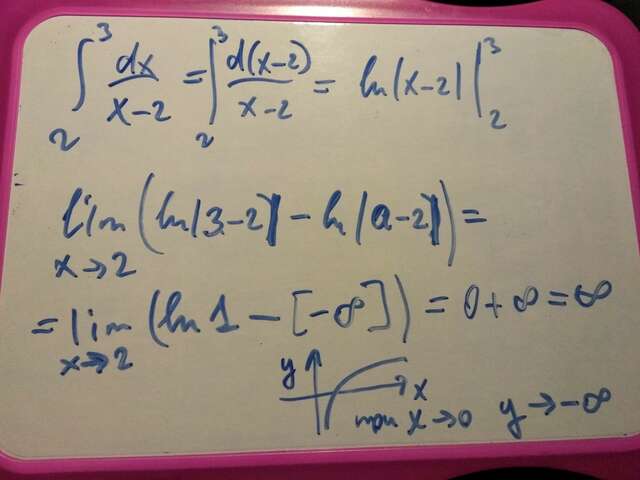 ∫₂³ dx/(x-2) = ∫₂³ d(x-2)/(x-2) = ln|x-2| |₂³
lim x→2 (ln|3-2| - ln|a-2|) =
= lim x→2 (ln 1 - [-∞]) = 0 + ∞ = ∞
y x
при x→0 y→-∞